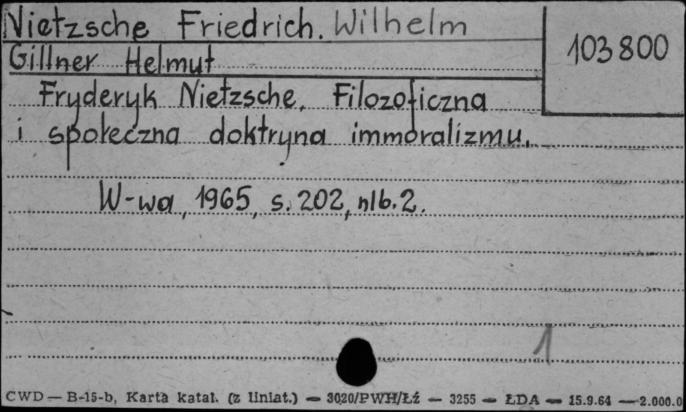 Nietzsche Friedrich. Wilhelm
103800
Gillner Helmut
Fryderyk Nietzsche. Filozoficzna
i społeczna doktryna immoralizmu.
W-wa, 1965, s. 202, nlb. 2.
1
CWD — B-15-b, Karta katal. (z liniat.) — 3020/PWH/Łź — 3255 — ŁDA — 15.9.64 — 2.000.0